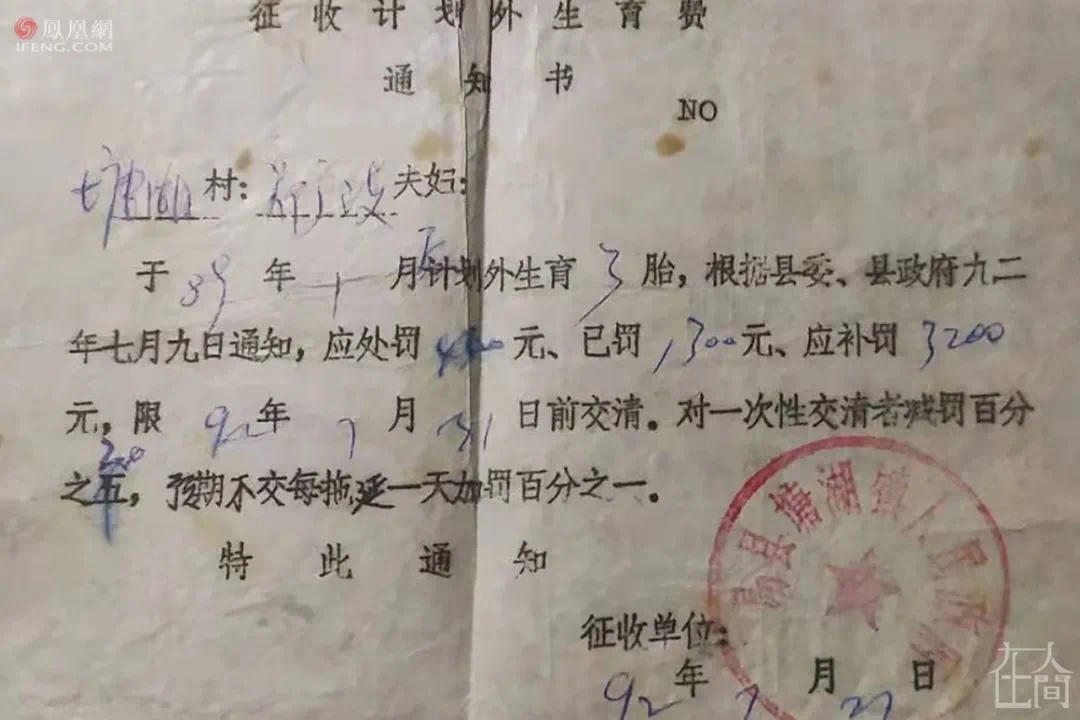 鳳凰網
IFENG.COM
征收计划外生育费
通知书
NO
塘湖村: 夫妇:
于89年 月计划外生育3胎，根据县委、县政府九二
年七月九日通知，应处罚4500元、已罚1300元、应补罚3200
元，限92年7月31日前交清。对一次性交清者减罚百分
之，预期不交每拖延一天加罚百分之一。
特此通知
易县塘湖镇人民政府
征收单位:
92年7月27日
在人间